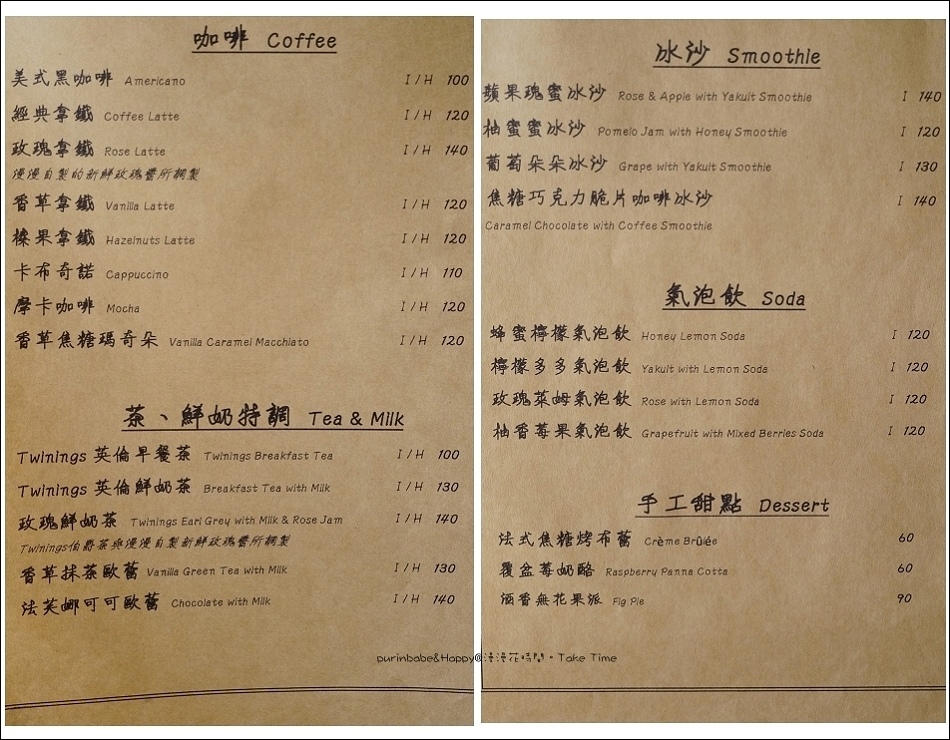 咖啡 Coffee
美式黑咖啡 Americano I / H 100
經典拿鐵 Coffee Latte I / H 120
玫瑰拿鐵 Rose Latte I / H 140
漫漫自製的新鮮玫瑰醬所調製
香草拿鐵 Vanilla Latte I / H 120
榛果拿鐵 Hazelnuts Latte I / H 120
卡布奇諾 Cappuccino I / H 110
摩卡咖啡 Mocha I / H 120
香草焦糖瑪奇朵 Vanilla Caramel Macchiato I / H 120
茶、鮮奶特調 Tea & Milk
Twinings 英倫早餐茶 Twinings Breakfast Tea I / H 100
Twinings 英倫鮮奶茶 Breakfast Tea with Milk I / H 130
玫瑰鮮奶茶 Twinings Earl Grey with Milk & Rose Jam I / H 140
Twinings伯爵茶與漫漫自製新鮮玫瑰醬所調製
香草抹茶歐蕾 Vanilla Green Tea with Milk I / H 130
法芙娜可可歐蕾 Chocolate with Milk I / H 140
冰沙 Smoothie
蘋果瑰蜜冰沙 Rose & Apple with Yakult Smoothie I 140
柚蜜蜜冰沙 Pomelo Jam with Honey Smoothie I 120
葡萄朵朵冰沙 Grape with Yakult Smoothie I 130
焦糖巧克力脆片咖啡冰沙 I 140
Caramel Chocolate with Coffee Smoothie
氣泡飲 Soda
蜂蜜檸檬氣泡飲 Honey Lemon Soda I 120
檸檬多多氣泡飲 Yakult with Lemon Soda I 120
玫瑰萊姆氣泡飲 Rose with Lemon Soda I 120
柚香莓果氣泡飲 Grapefruit with Mixed Berries Soda I 120
手工甜點 Dessert
法式焦糖烤布蕾 Crème Brûlée 60
覆盆莓奶酪 Raspberry Panna Cotta 60
酒香無花果派 Fig Pie 90
purinbabe&Happy@漫漫花時間・Take Time